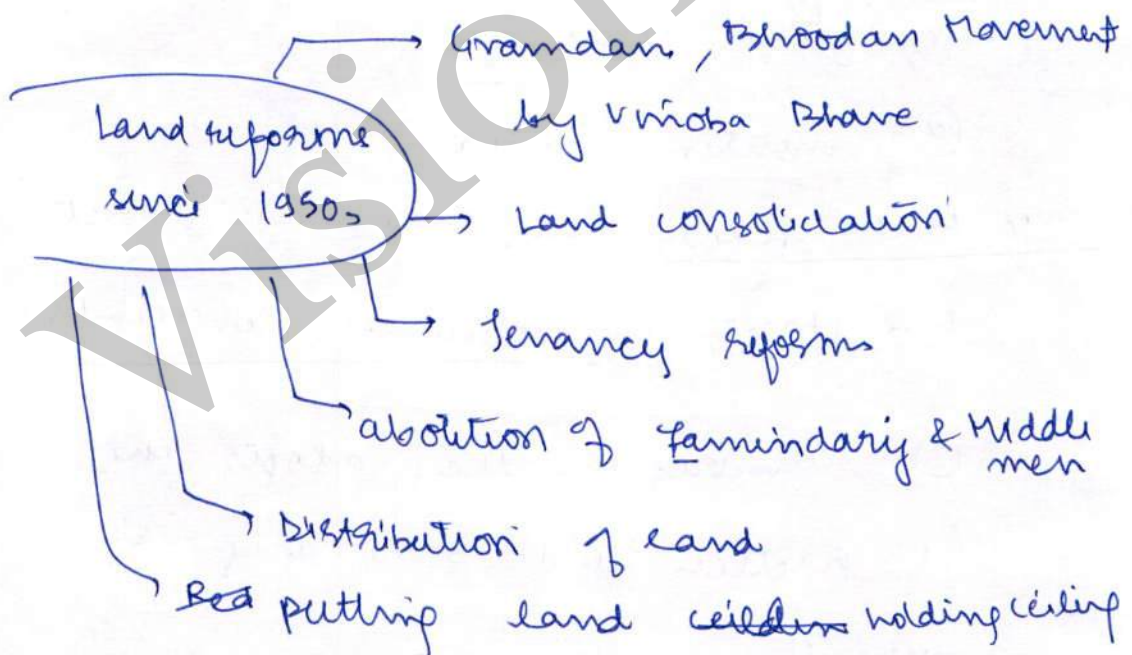 Land reforms
since 1950s
Gramdan, Bhoodan Movement
by Vinoba Bhave
Land consolidation
Tenancy reforms
abolition of Zamindary & Middle
men
Distribution of land
putting land holding ceiling
Vision